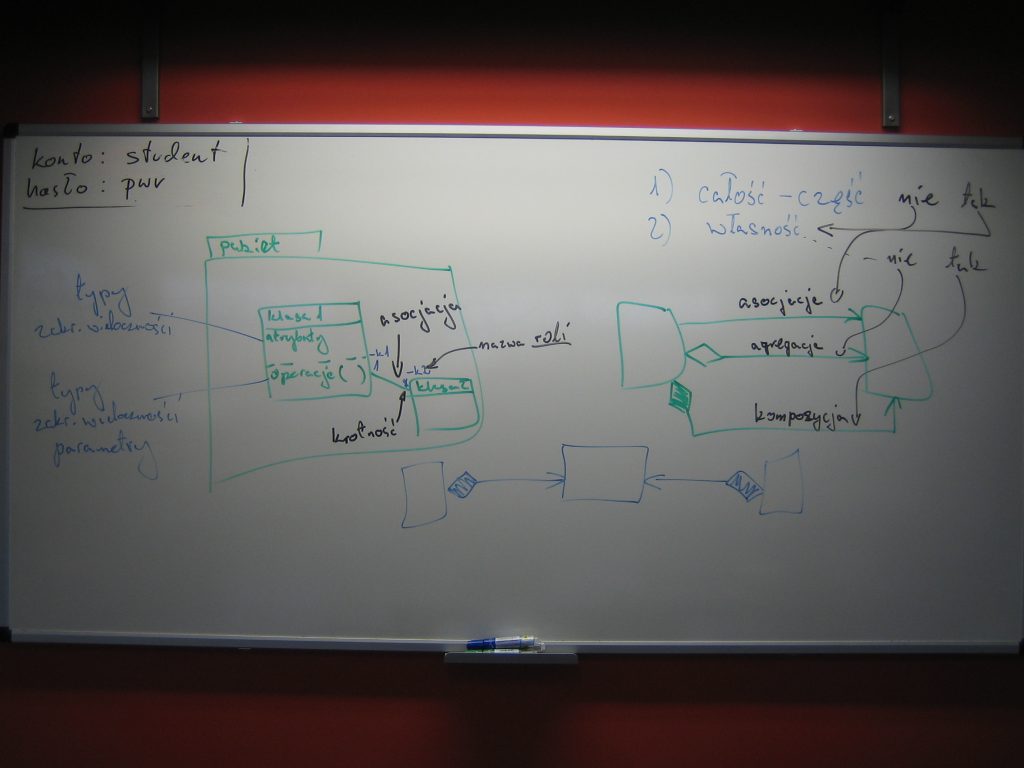 konto: student
hasło: pwr
1) całość - część nie tak
2) własność - nie tak
pakiet
typy
zakr. widoczności
klasa 1
atrybuty
operacje ( )
typy
zakr. widoczności
parametry
asocjacja
-k1
1
-k2
*
nazwa roli
klasa 2
krotność
asocjacje
agregacje
kompozycja